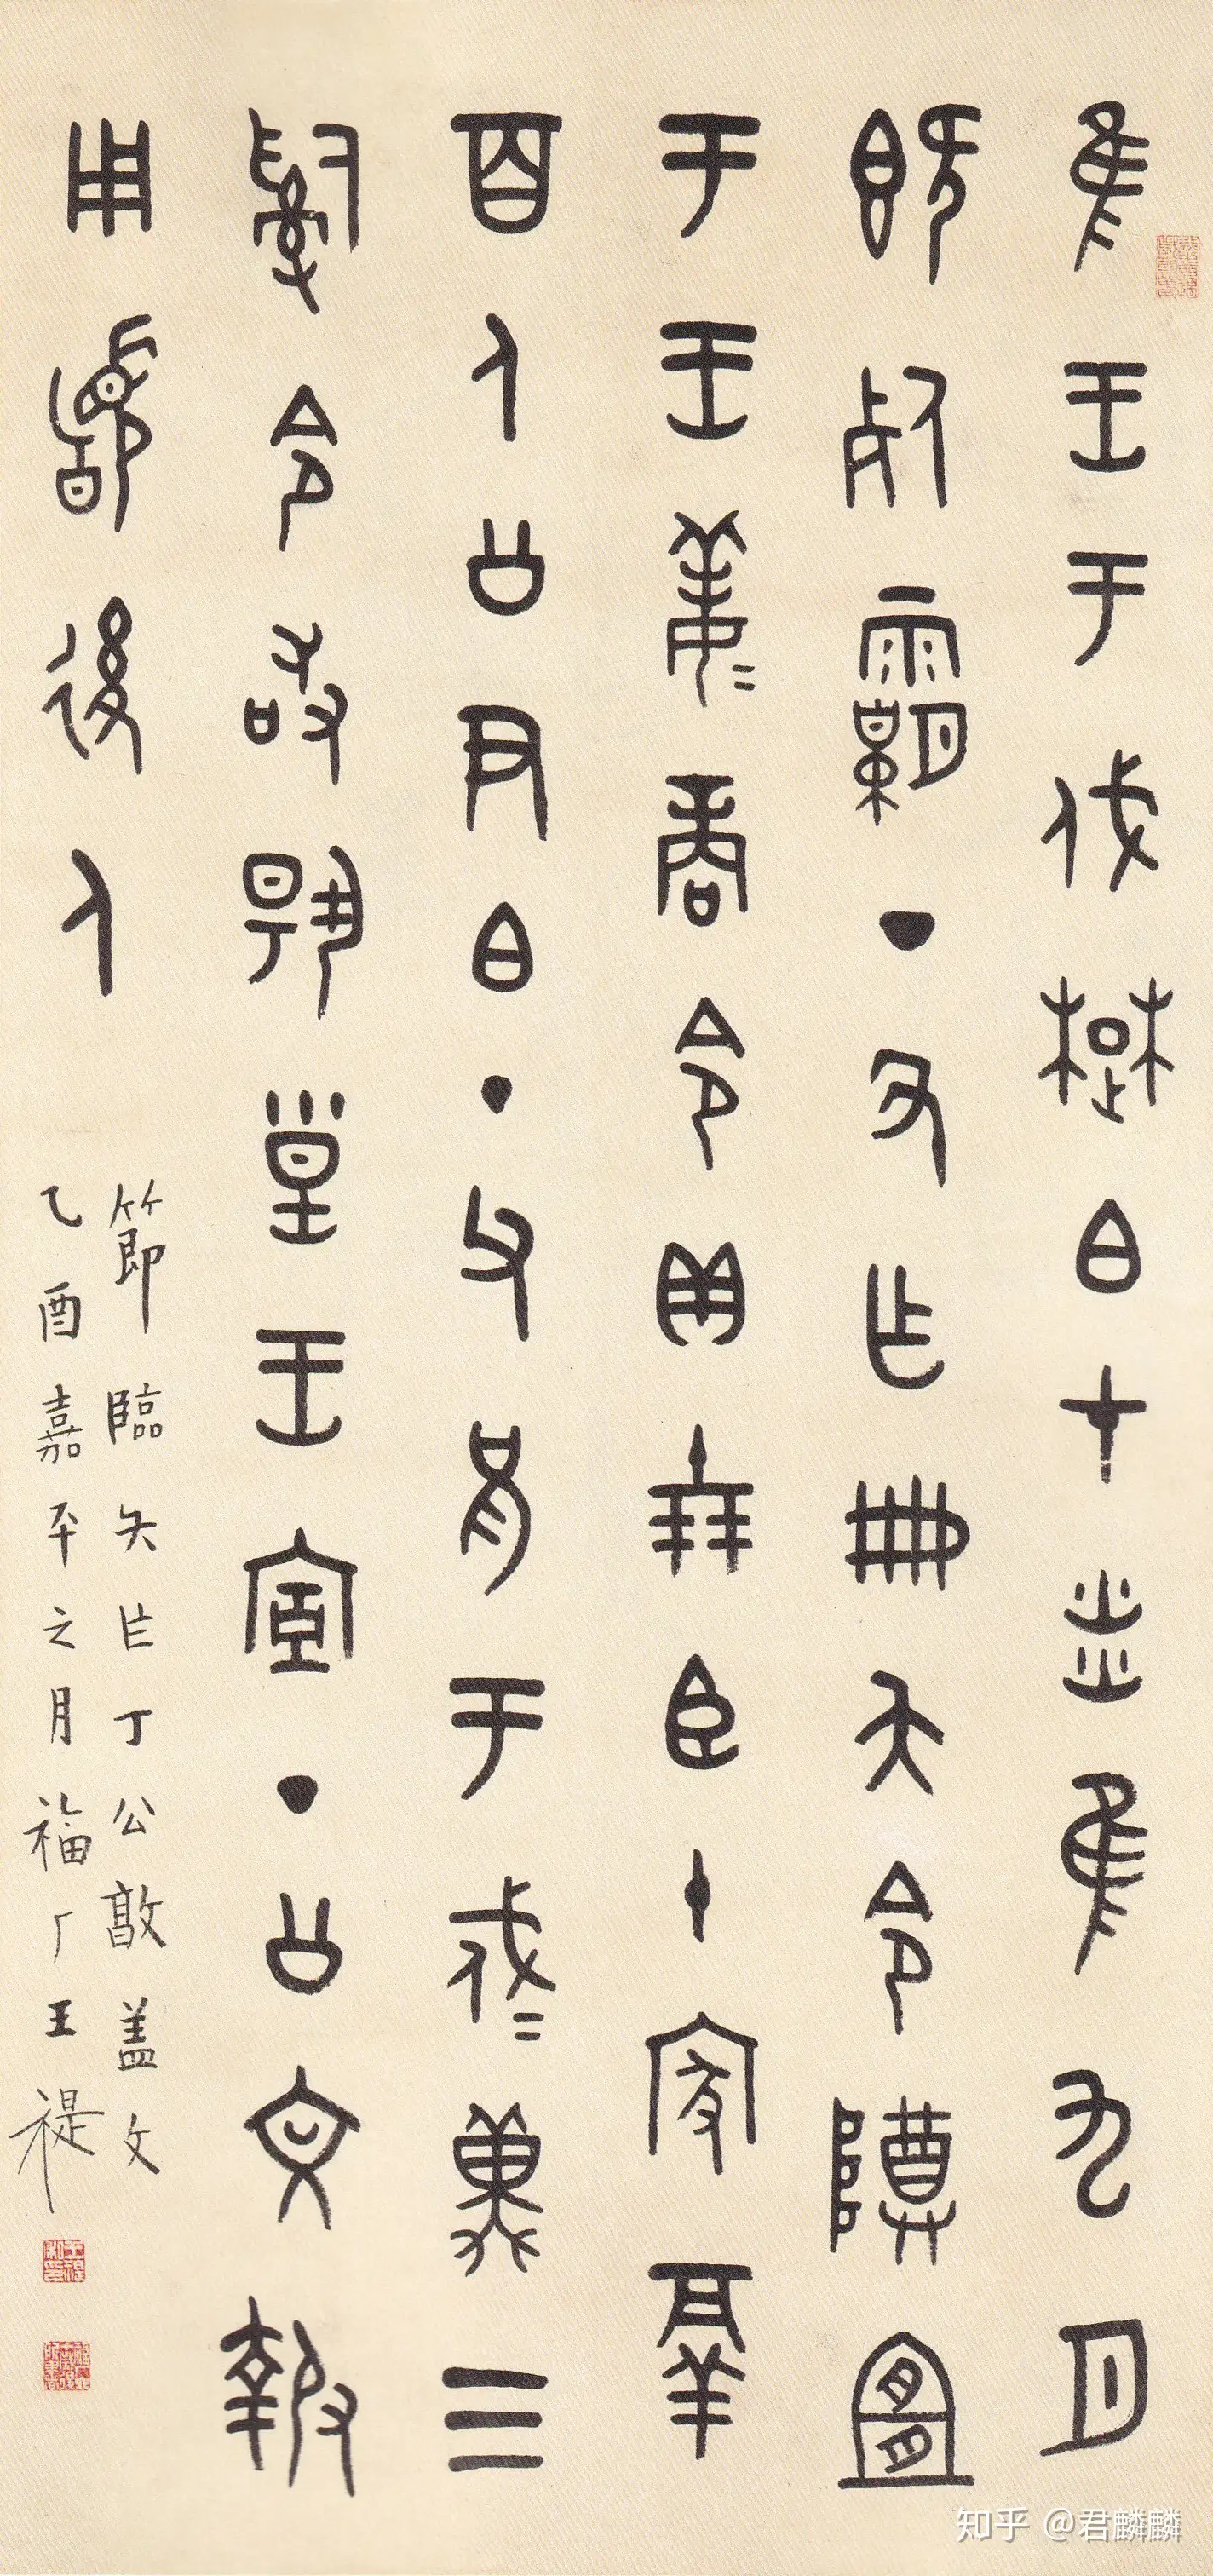 隹王于伐楚白才炎隹九月
既死霸丁丑乍冊夨令尊宜
于王姜=商令貝十朋臣十家鬲
百人公尹白丁父兄于戍=冀三
嗣令敢揚皇王宣丁公文報
用𩒨後人
節臨夨乍丁公敦蓋文
乙酉嘉平之月福厂王禔
知乎 @君麟麟